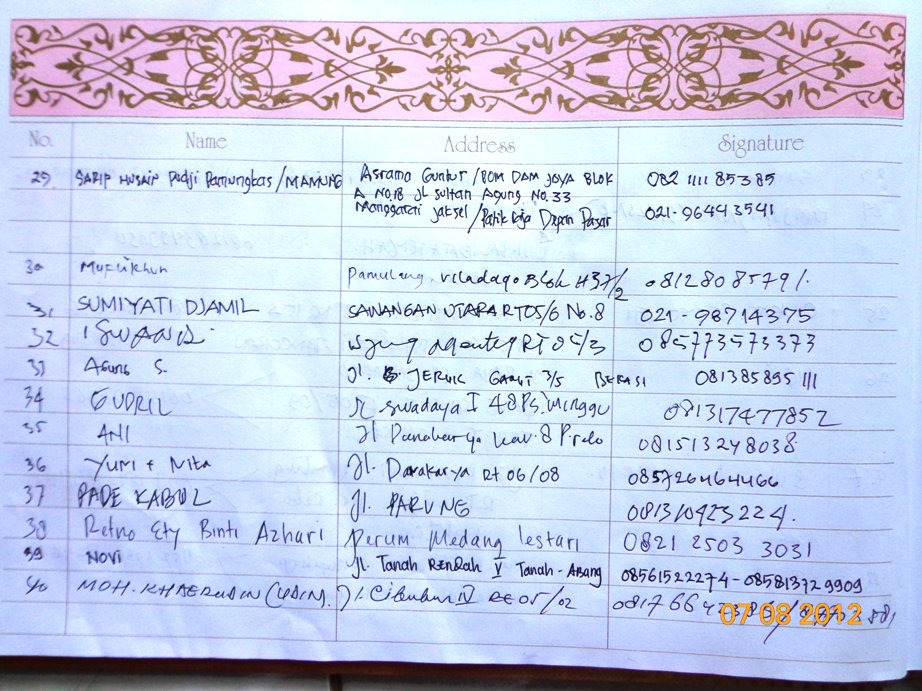 No. Name Address Signature
29 SARIP HUSAIN Pudji Pamungkas/MANJUNG Asrama Guntur/POM DAM JAYA BLOK 082 1111 85385
A NO.18 Jl Sultan Agung No.33
Manggarai Jaksel/ Depan Pasar 021-96443541
30 Muflikhun Pamulang. Blok H37/2 08128085791.
31 SUMIYATI DJAMIL SAWANGAN UTARA RT05/6 No.8 021-98714375
32 ISWANDI RT 05/3 085773573373
33 Agung S. Jl. JERUK GARUT 3/5 BEKASI 081385895111
34 GUDRIL Jl swadaya I 48 Ps. Minggu 081317477852
35 ANI Jl 081513248038
36 Yuni + Nita Jl. Damakarya RT 06/08 085726464466
37 PADE KABUL Jl. PARUNG 081310423224.
38 Retno Ety Binti Azhari Perum Medang lestari 0821 2503 3031
39 NOVI Jl. Tanah RENDAH V Tanah-Abang 08561522274-085813729909
40 MOH. KHAERUDIN (UDIN). Jl. Cibubur IV RT 05/02
07 08 2012